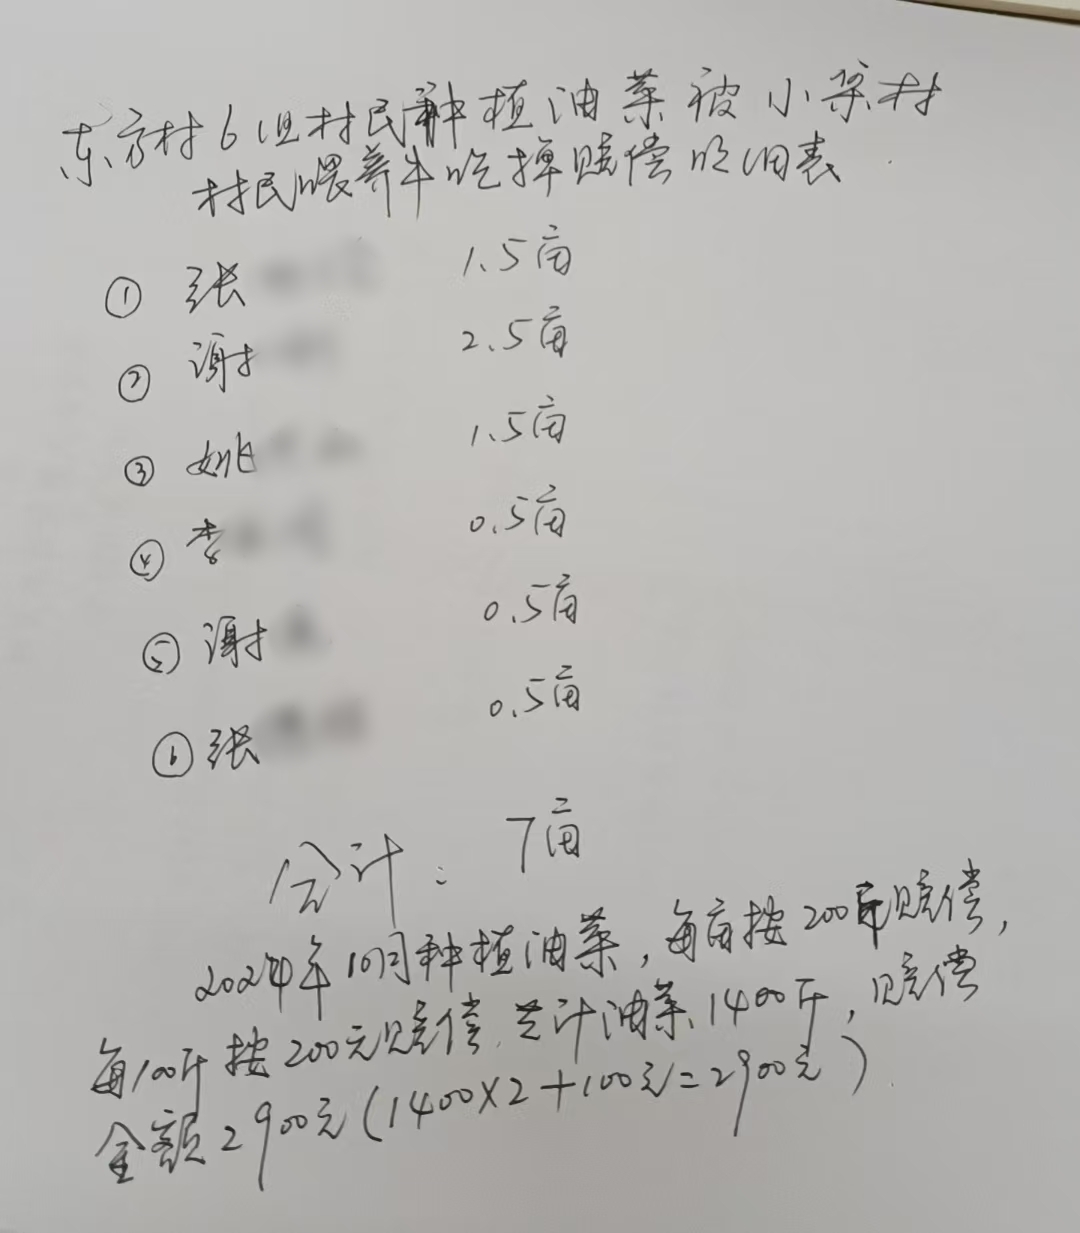 东方村6组村民种植油菜被小梁村
村民喂养牛吃掉赔偿明细表
① 张 1.5亩
② 谢 2.5亩
③ 姚 1.5亩
④ 李 0.5亩
⑤ 谢 0.5亩
⑥ 张 0.5亩
合计: 7亩
2024年10月种植油菜,每亩按200斤赔偿,
每100斤按200元赔偿.共计油菜1400斤,赔偿
金额2900元(1400×2+100元=2900元)